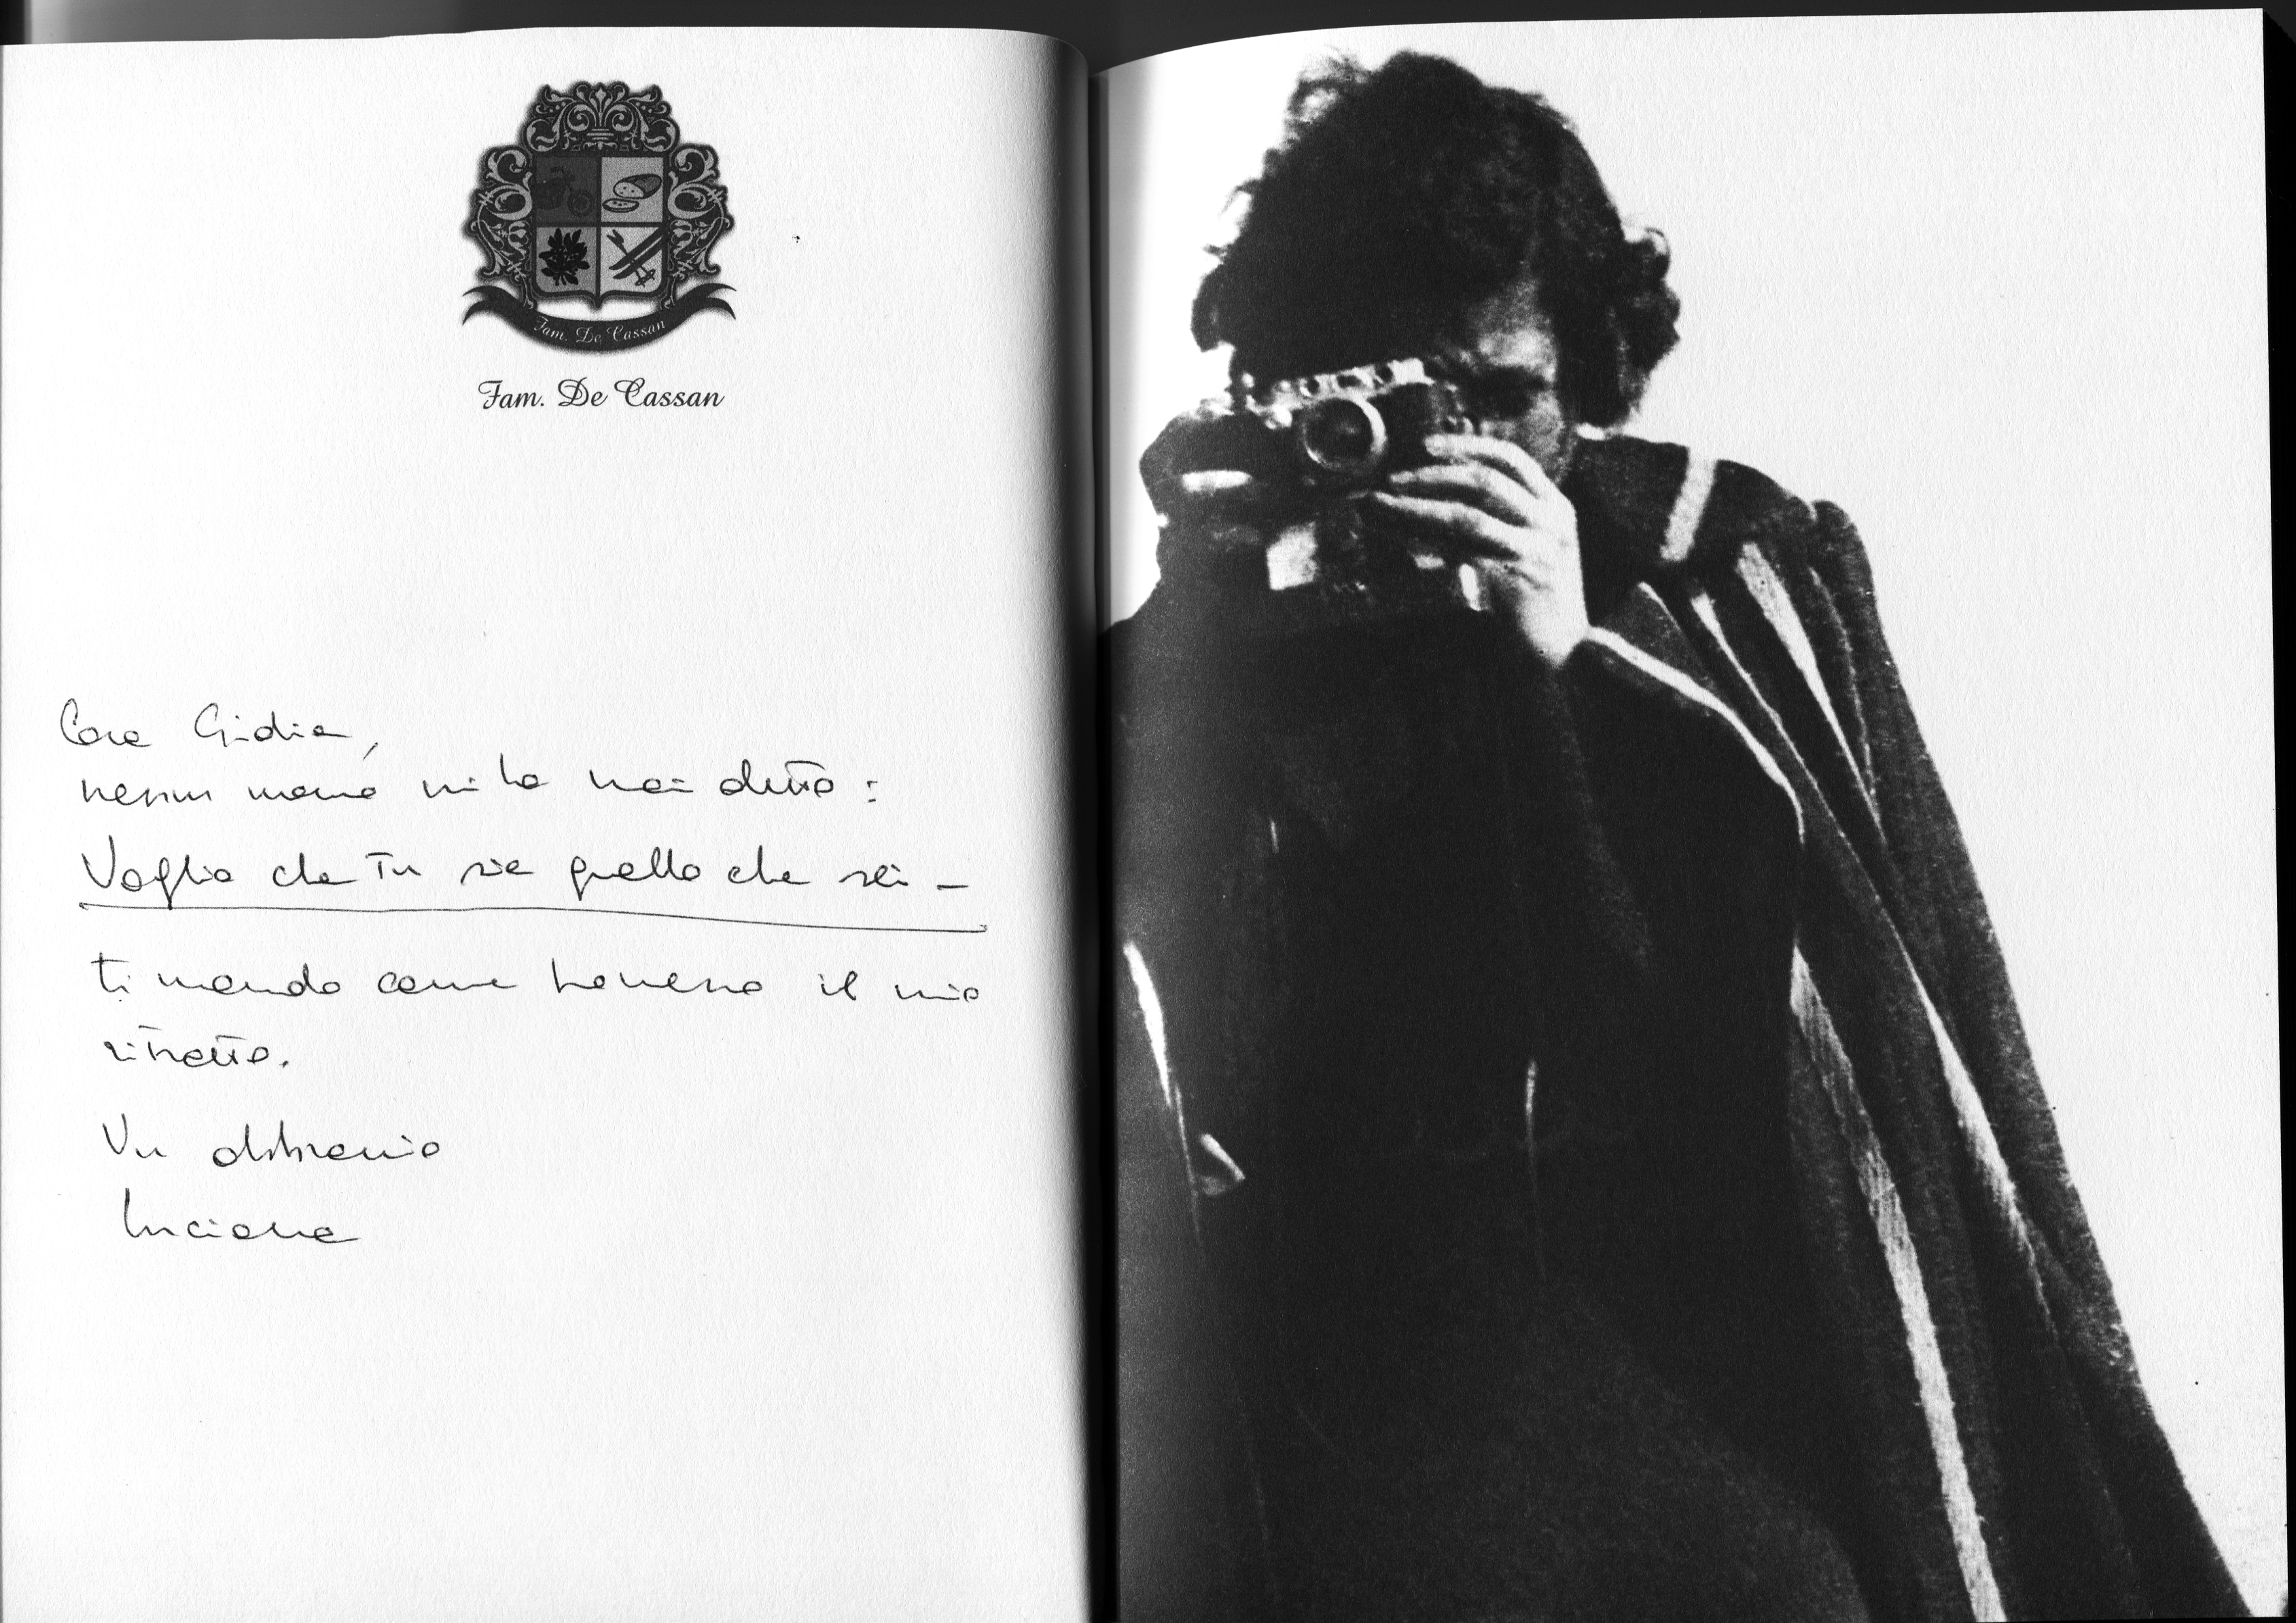 Fam. De Cassan
Fam. De Cassan
Cara Giidia,
nessun mi ha mai detto:
Voglio che tu sia quello che sei –
ti mando come il mio
ritratto.
Un abbraccio
Luciana